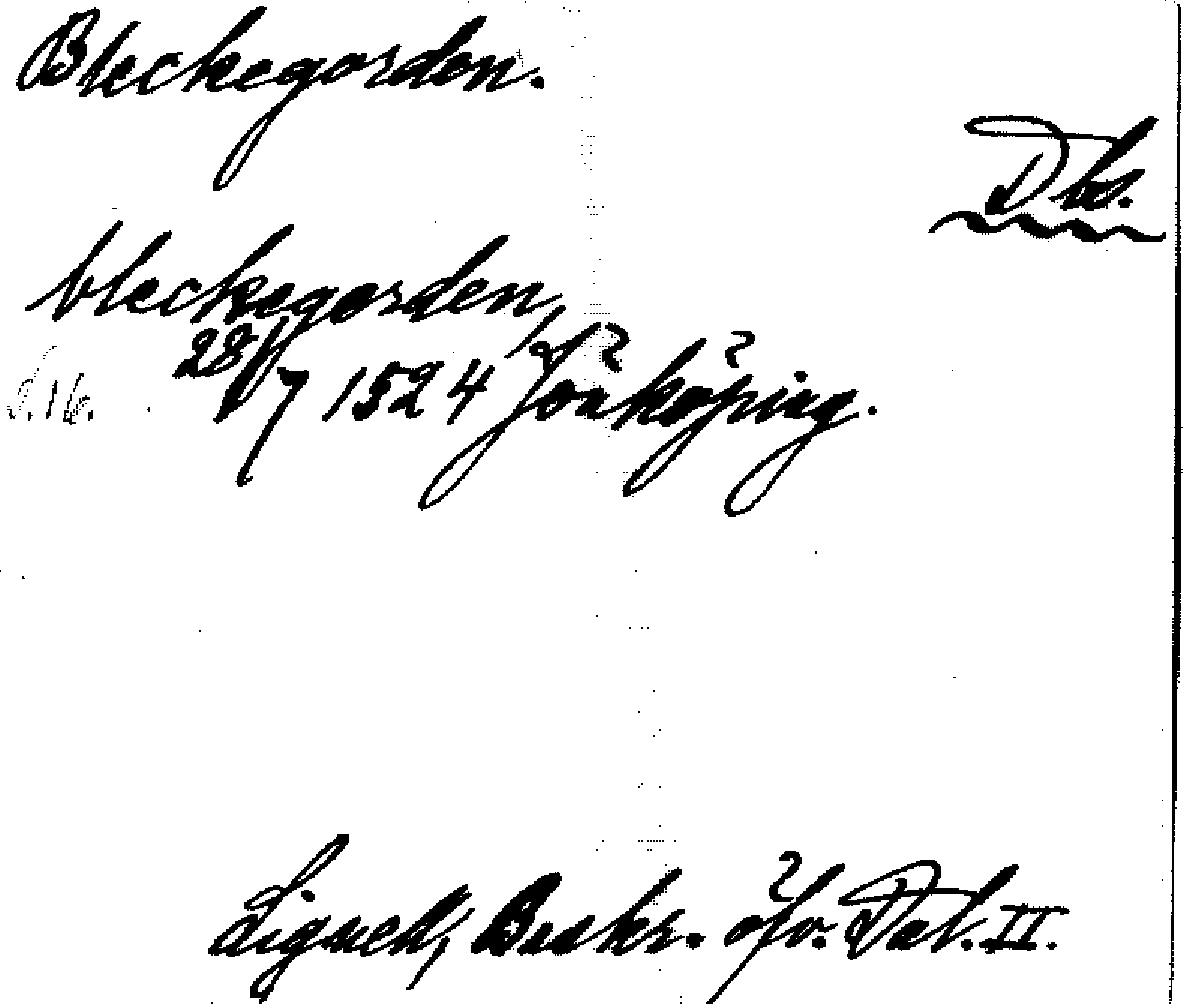 Bleckegorden.
Dbs.
bleckegorden,
28/7 1524 Jönköping.
S. 16.
Lignell, Beskr. öfv. Dal. II.